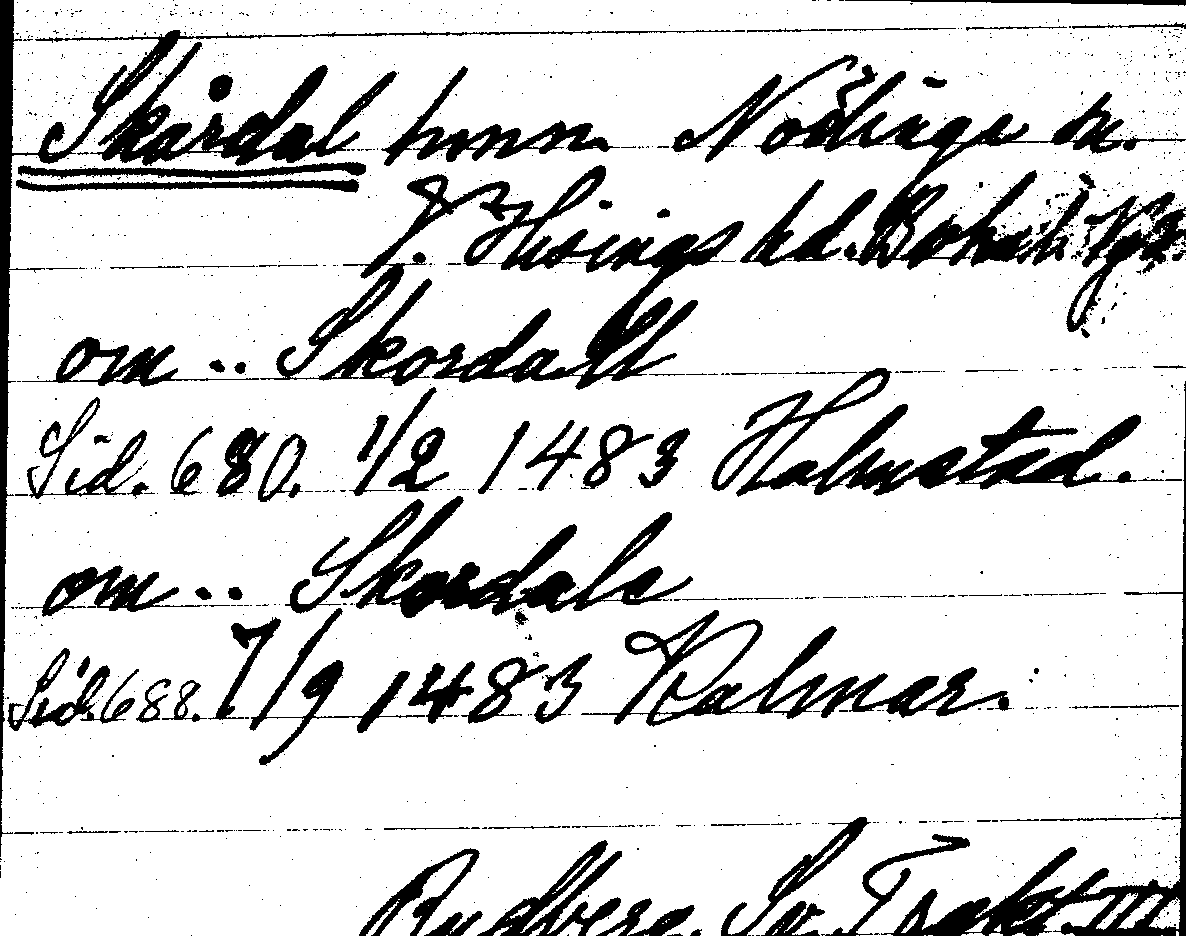 Skårdal hmn. Nödinge sn.
V. Hisings hd. Bohusl.
om .. Skordall
Sid. 680. 1/2 1483 Halmstad.
om .. Skordale
Sid. 688. 7/9 1483 Kalmar.
Rydberg. Sv. Trakt. III.